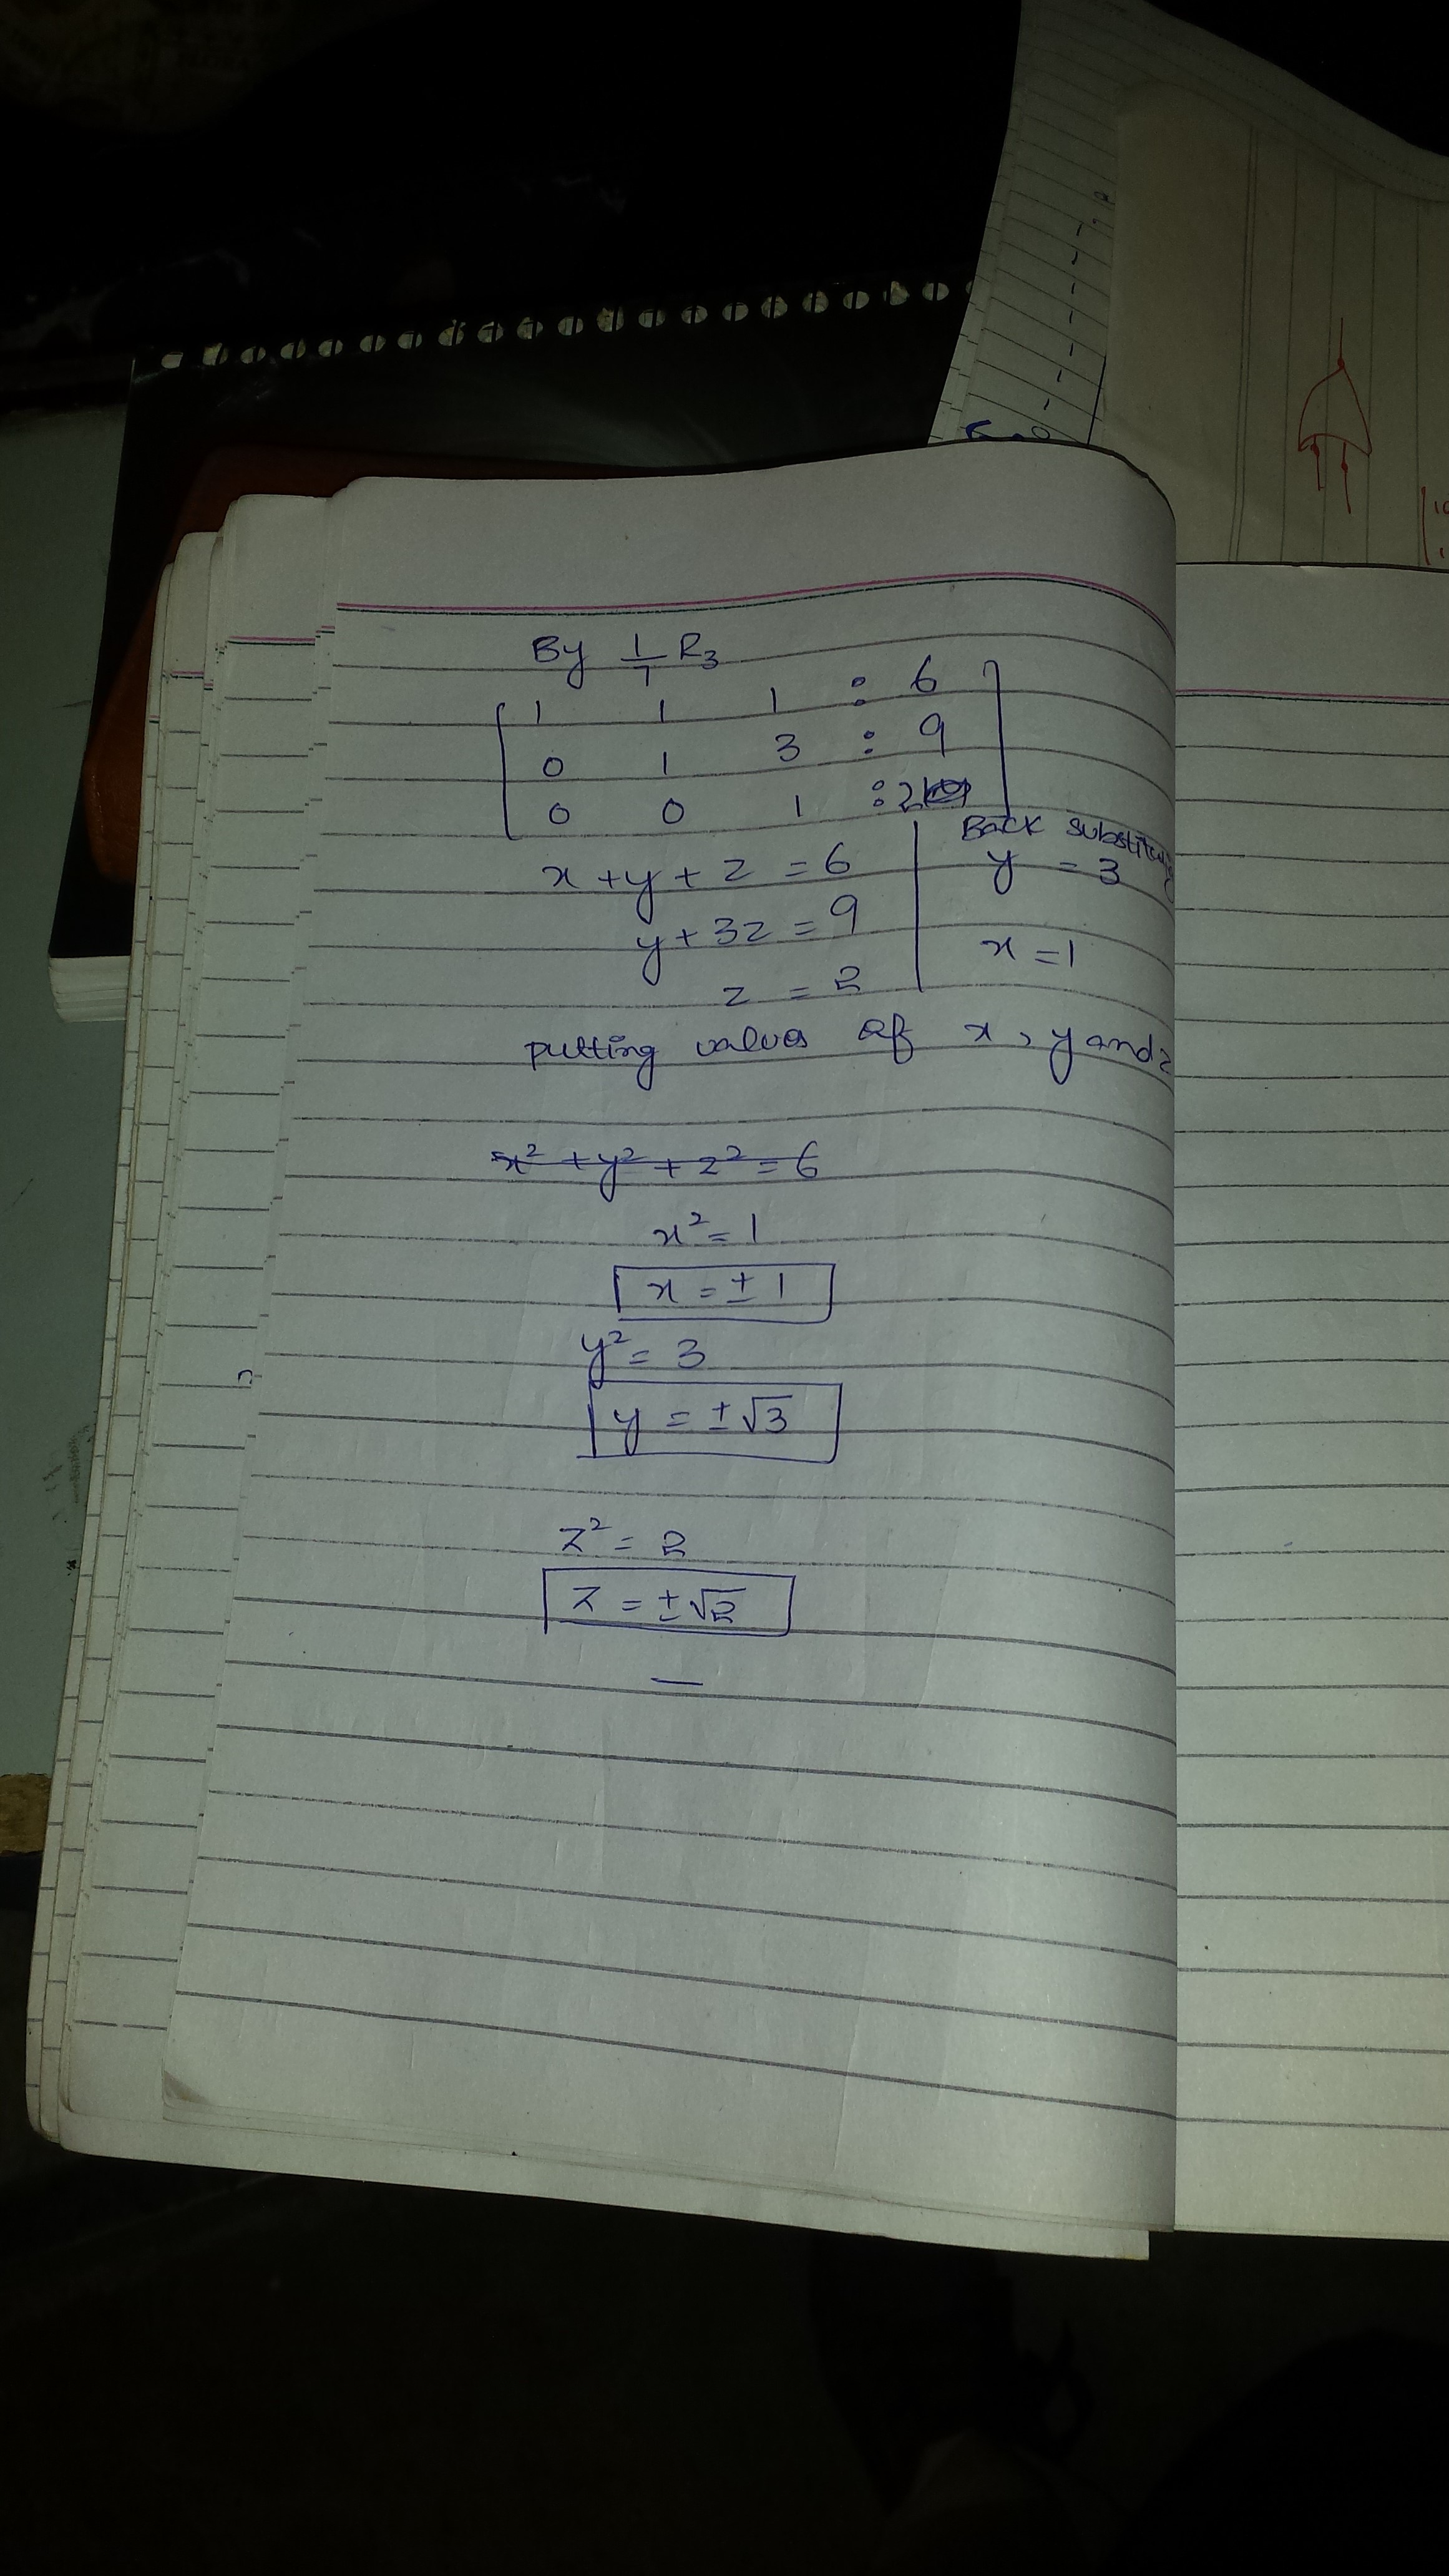 By 1/7 R3
1 1 1 : 6
0 1 3 : 9
0 0 1 : 2
x + y + z = 6
y + 3z = 9
z = 2
Back substituting
y = 3
x = 1
putting values of x, y and z
x² + y² + z² = 6
x² = 1
x = ± 1
y² = 3
y = ± √3
z² = 2
z = ± √2